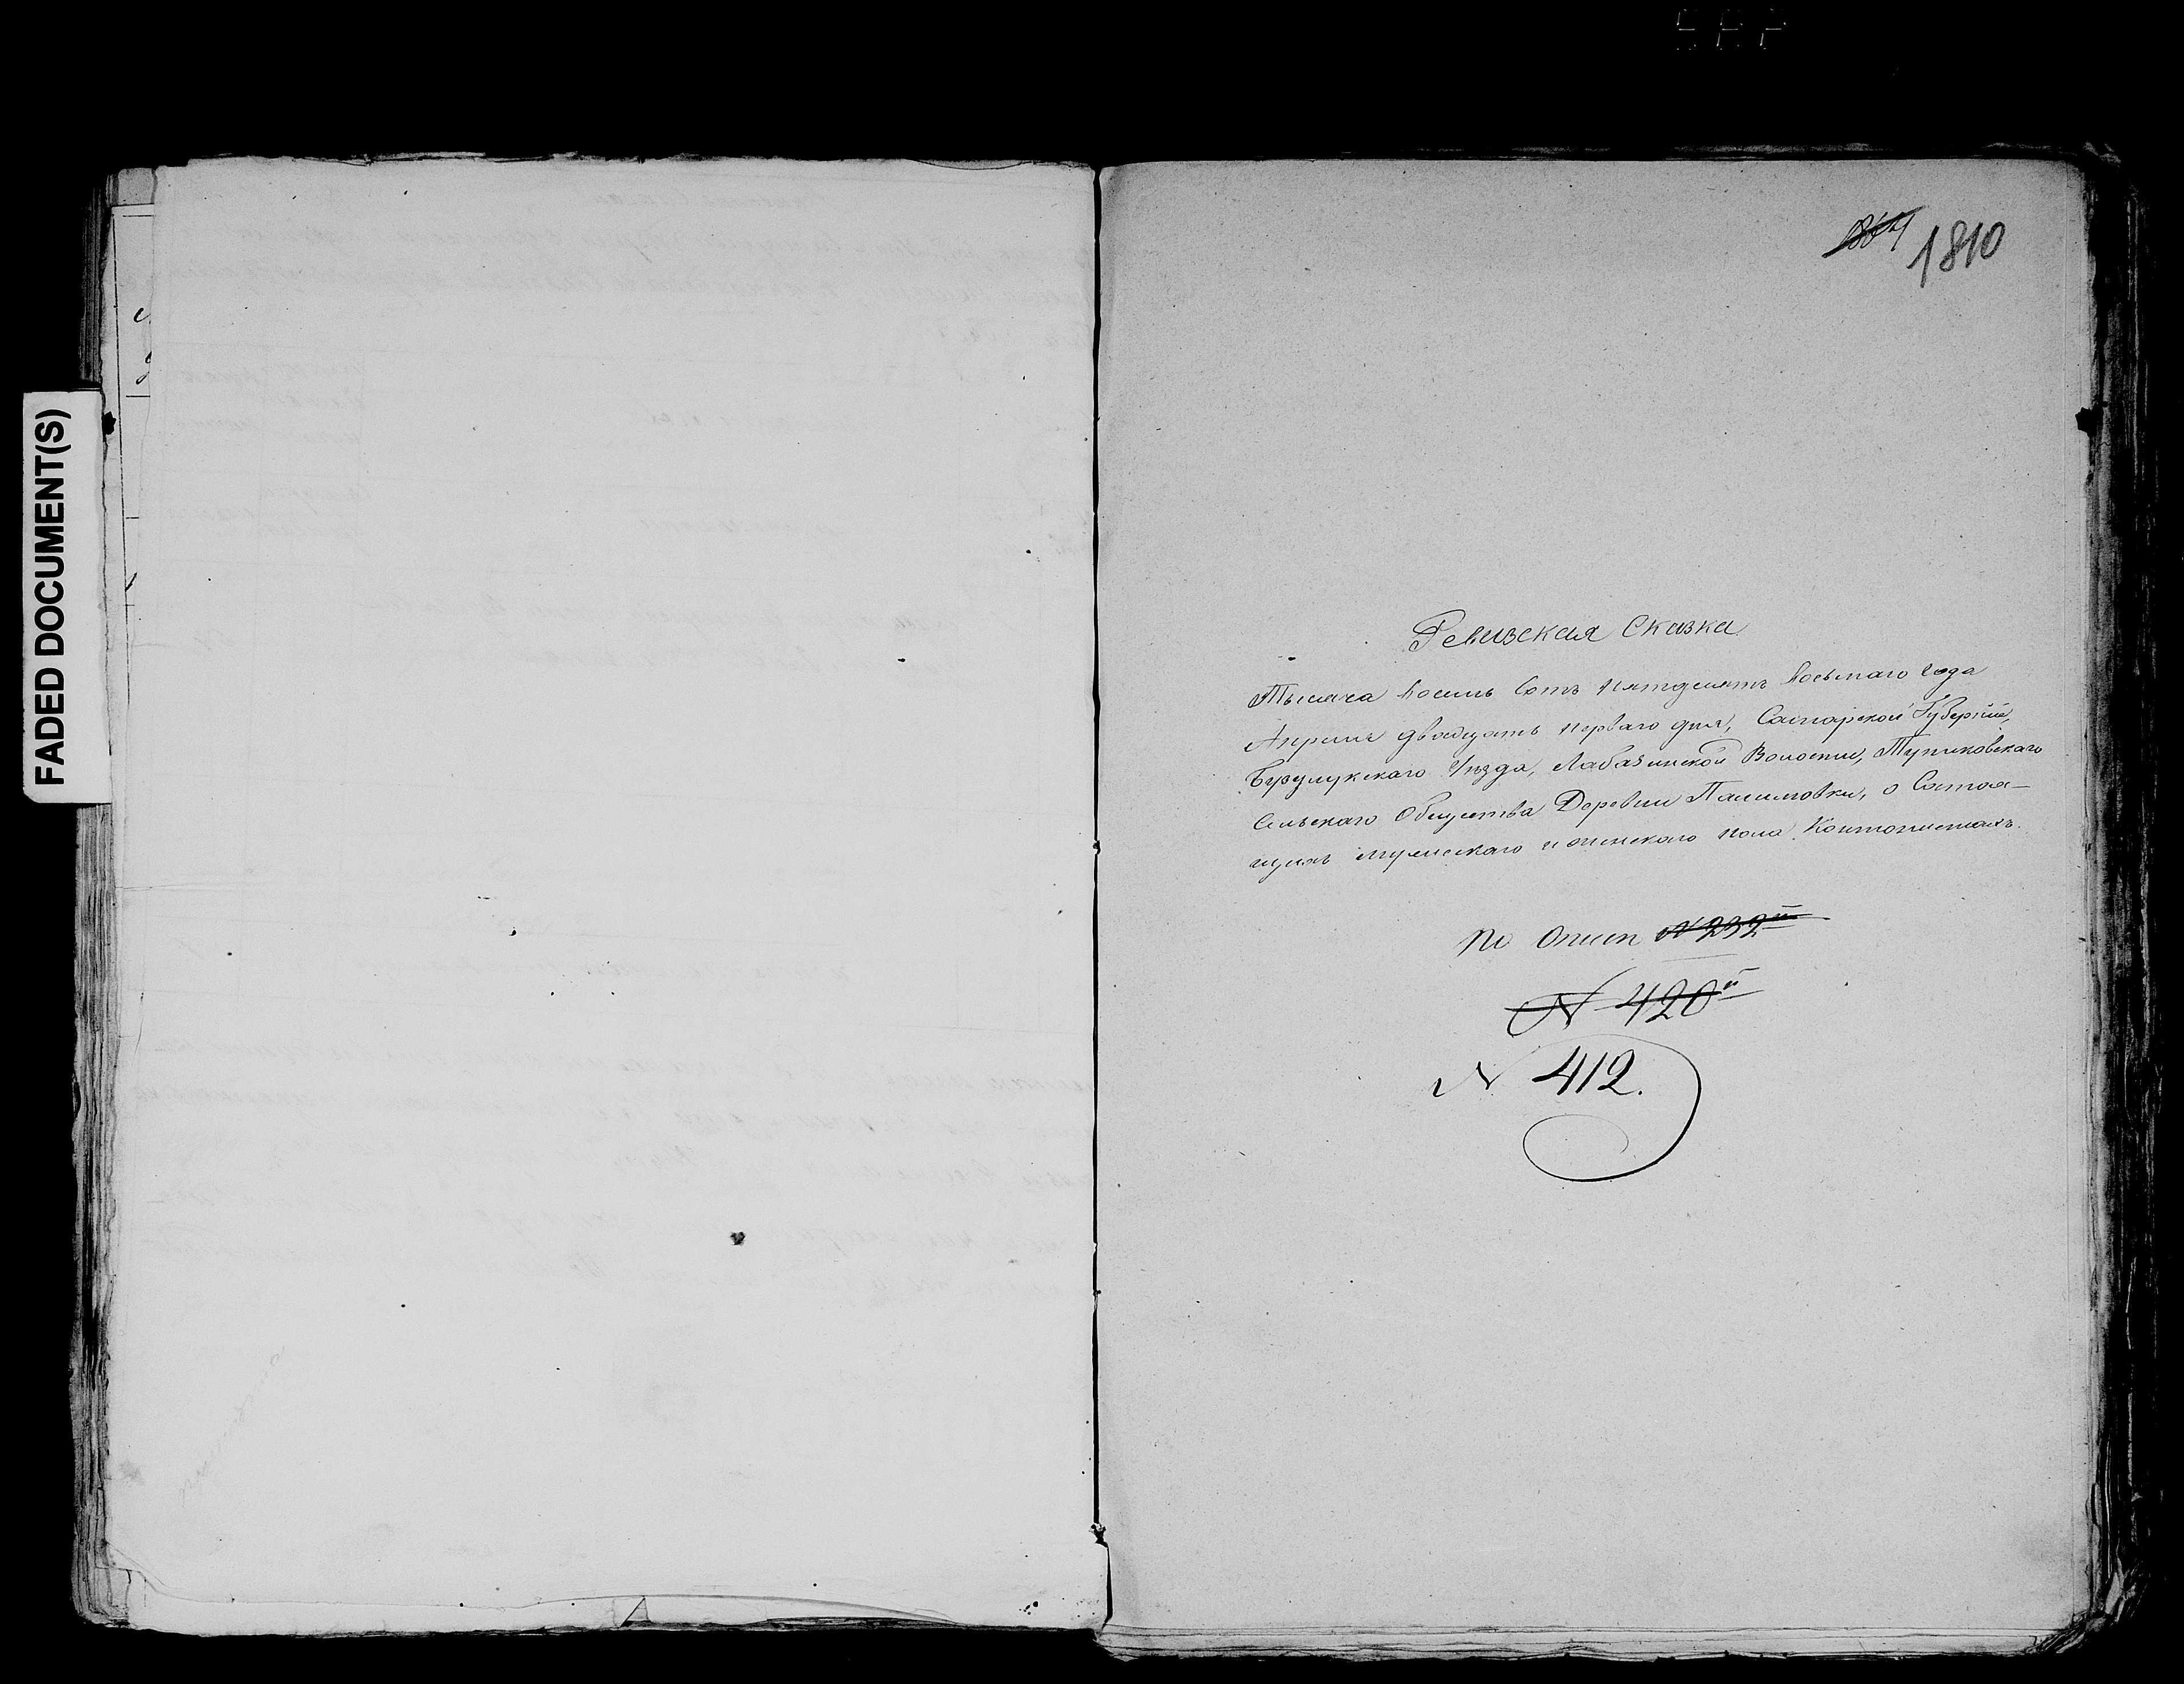 FADED DOCUMENT(S)
1810
Ревизская Сказка
Тысяча восемь Сотъ пятдесятъ восьмаго года
Апреля двадцать перваго дня, Самарской Губерніи,
Бузулукскаго Уѣзда, Лабазинской Волости,
Сельскаго Общества Деревни Палимовки, о Состоя-
щихъ мужескаго и женскаго пола
По Описи N 232й
N 420й
N 412.